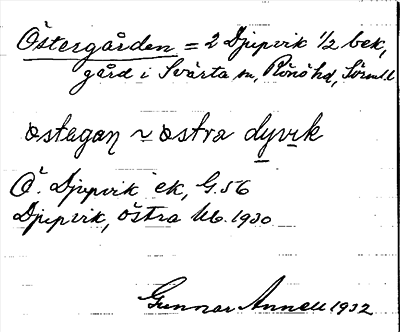 Östergården = 2 Djupvik 1/2 bek,
gård i Svärta sn, Rönö hd, Sörml.
östagaṇ ~ östra dyvik
Ö. Djupvik ek, G. 56
Djupvik, östra Ub. 1930
Gunnar Annell 1932